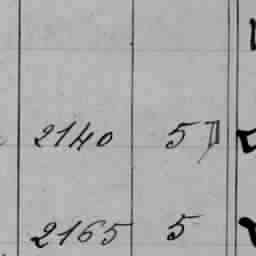 2140 5
2165 5